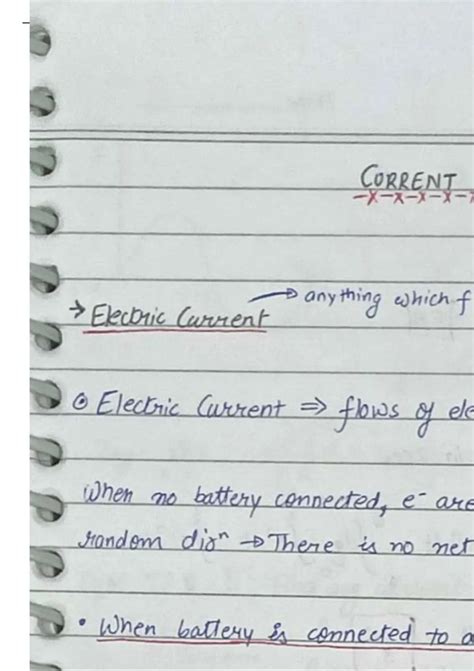 CORRENT
-x-x-x-x-x
→ anything which f
→ Electric Current
⊙ Electric Current ⇒ flows of ele
When no battery connected, e⁻ are
random dirⁿ → There is no net
• When battery is connected to a